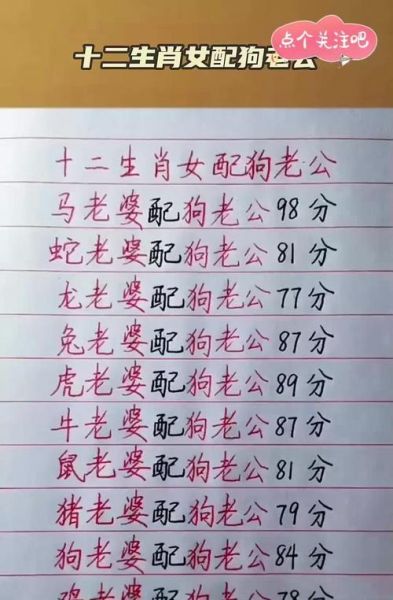 十二生肖女配狗老公
点个关注吧
十二生肖女配狗老公
马老婆配狗老公98分
蛇老婆配狗老公81分
龙老婆配狗老公77分
兔老婆配狗老公87分
虎老婆配狗老公89分
牛老婆配狗老公87分
鼠老婆配狗老公81分
猪老婆配狗老公79分
狗老婆配狗老公84分
鸡老婆配狗老公78分